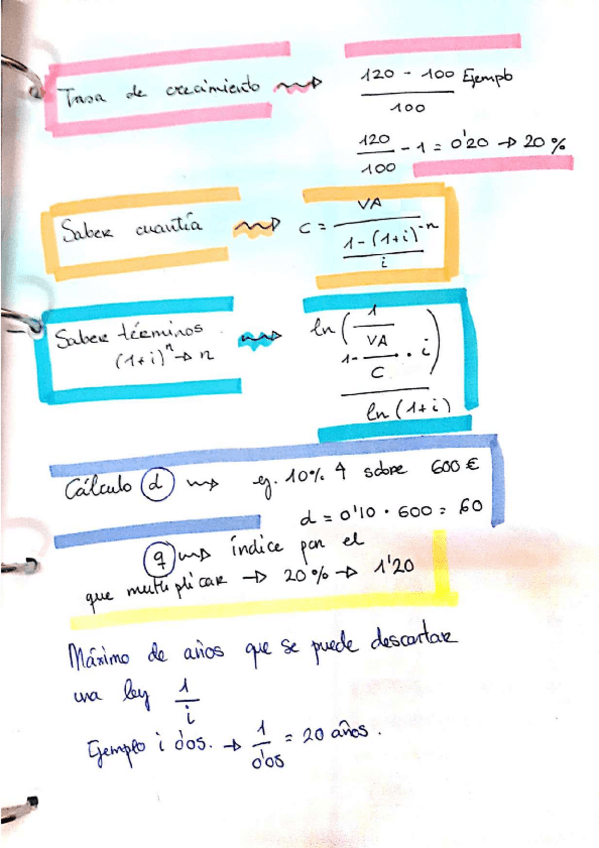 Tasa de crecimiento → 120 - 100 / 100 Ejemplo
120 / 100 - 1 = 0'20 → 20%
Saber cuantía → C = VA / ((1 - (1+i)^-n) / i)
Saber términos
(1+i)^n → n
ln ( 1 / (1 - VA / C · i) ) / ln (1+i)
Cálculo d → eg. 10% ↑ sobre 600 €
d = 0'10 · 600 = 60
q → índice por el
que multiplicar → 20% → 1'20
Máximo de años que se puede descontar
una ley 1 / i
Ejemplo i 0'05. → 1 / 0'05 = 20 años.